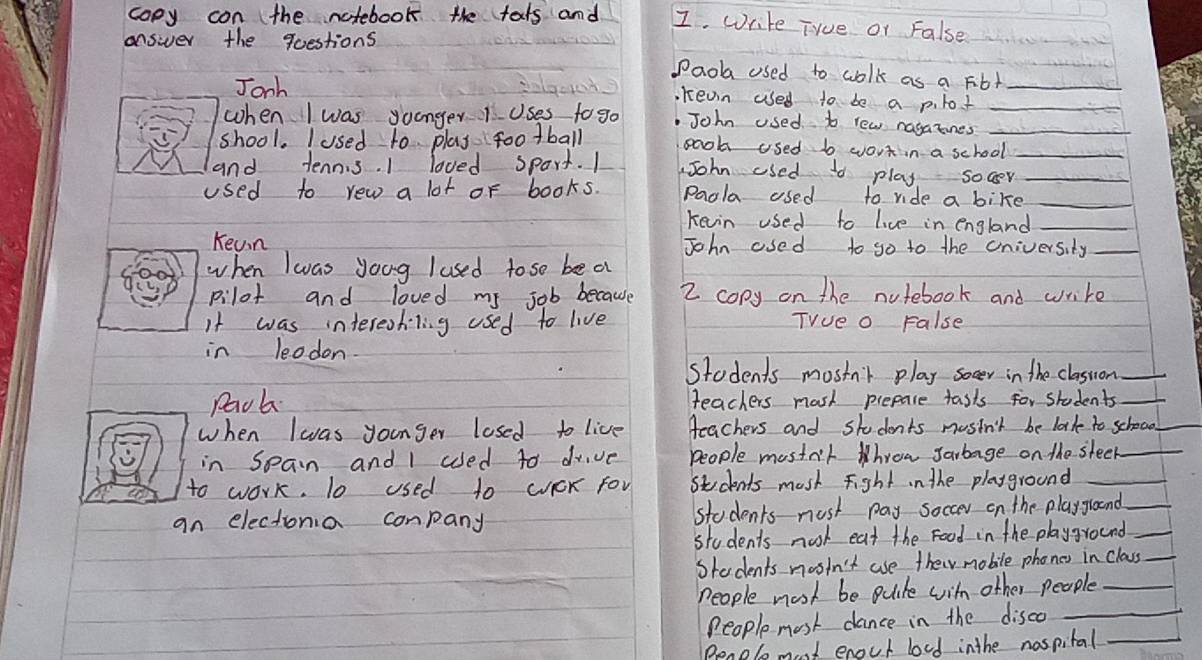 copy con the notebook the tats and
answer the questions
Jonh
when I was younger I Uses to go
shool. I used to play football
and tennis. I loved sport. I
used to rew a lot of books.
Kevin
when I was youg I used to so be a
pilot and loved my job becawe
it was interestiling used to live
in leodon.
Paula
when I was younger I used to live
in Spain and I used to drive
to work. Io used to work for
an electonia conpany
I. Write True or False
Paola used to walk as a
Kevin used to be a pilot
John used to rew nagazines
paola used to work in a school
John used to play soccer
Paola used to ride a bike
Kevin used to live in england
John used to go to the university
2 copy on the nutebook and write
True o False
Students mostn't play soccer in the
teachers mast prepare tasks for students
teachers and students mustn't be late to school
people mustn't throw garbage on the steet
students most Fight in the playground
students must pay soccer on the playground
students must eat the Food in the playground
Students mostn't use their mobile phones in class
People most be pulite with other people
People most dance in the disco
People must loud in the hospital